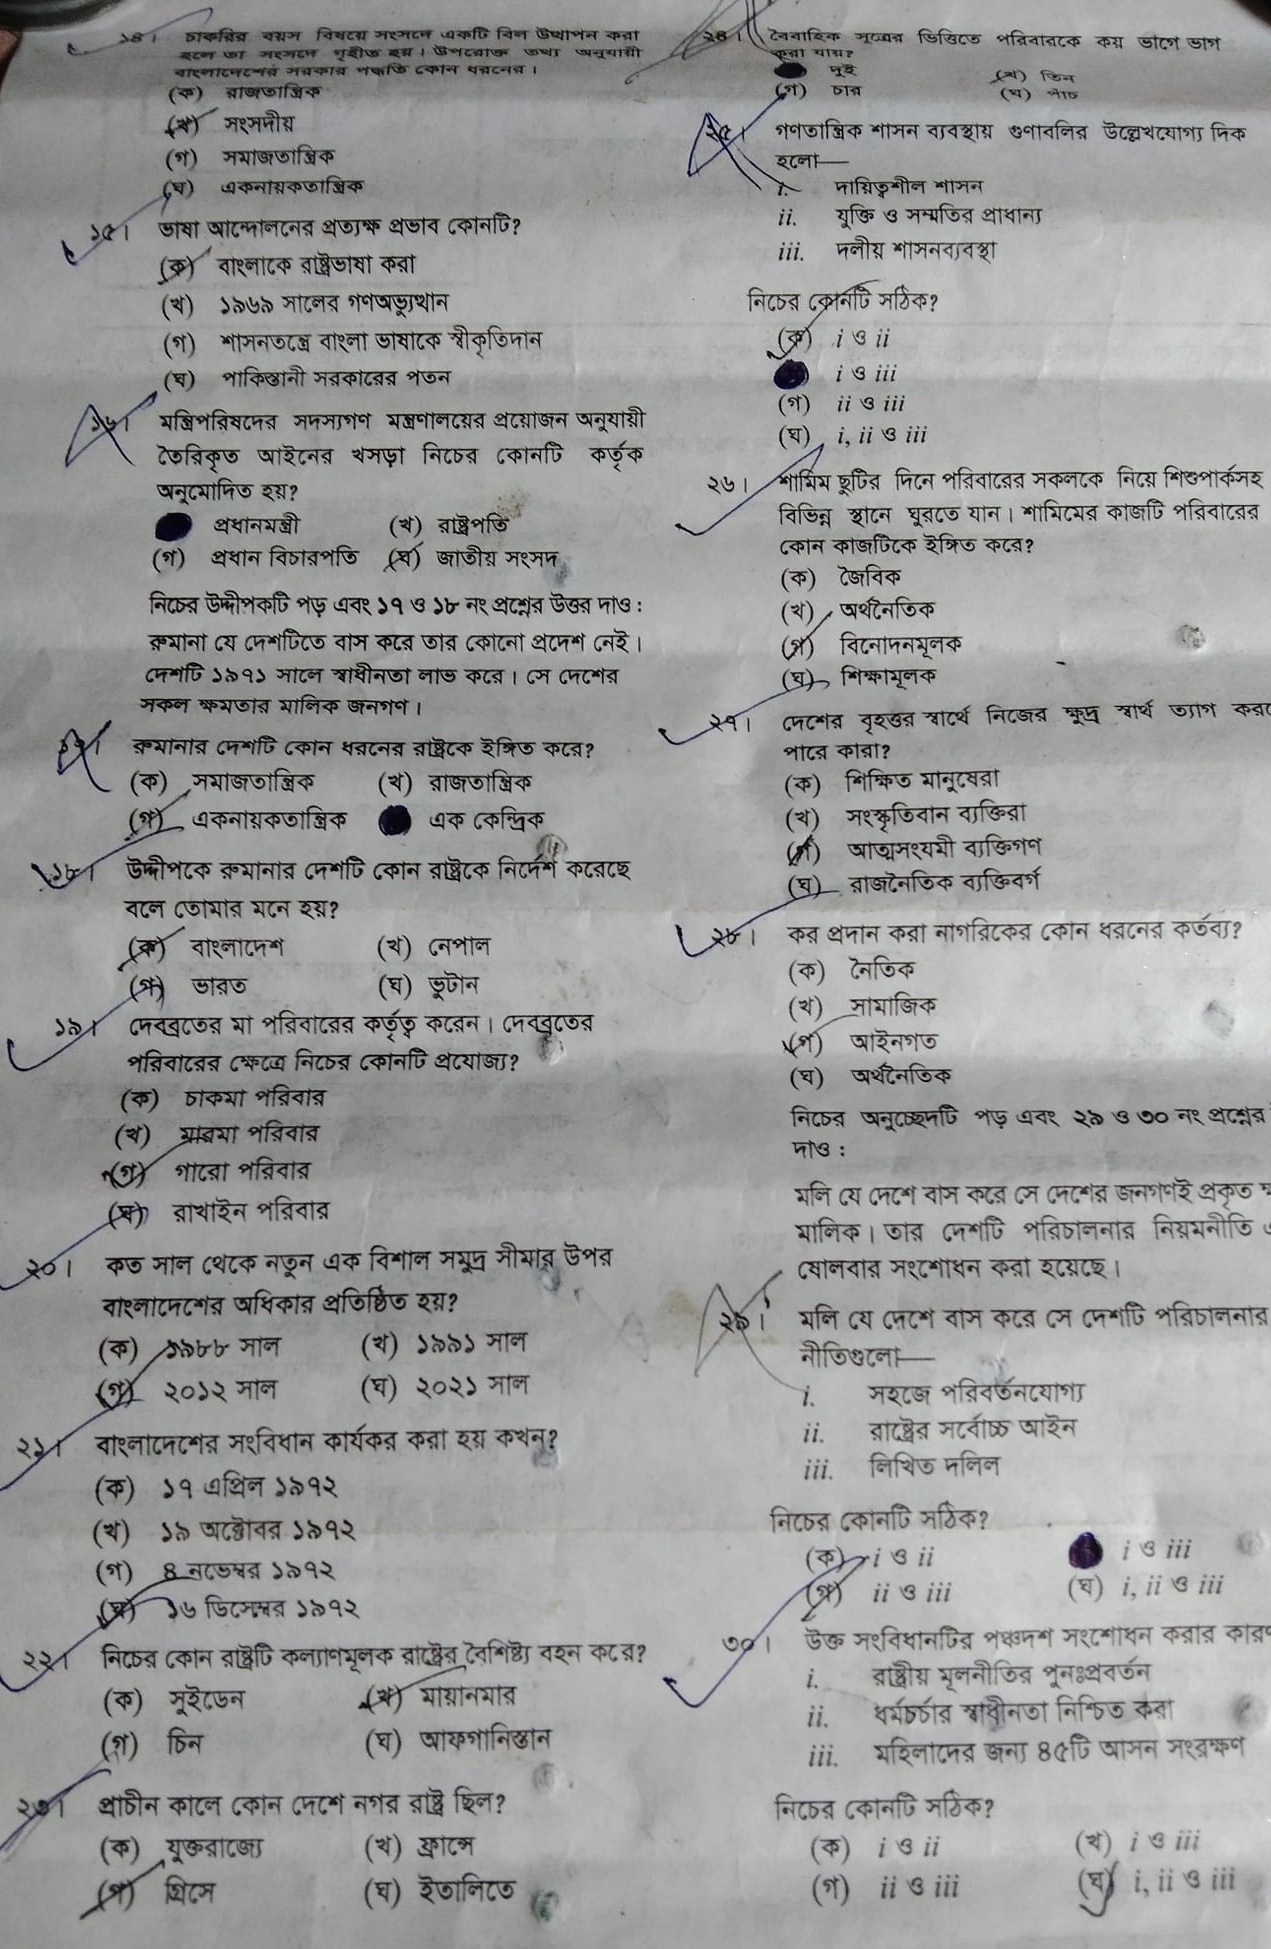 ১৪। চাকরির বয়স বিষয়ে সংসদে একটি বিল উত্থাপন করা
হলে তা সংসদে গৃহীত হয়। উপরোক্ত তথ্য অনুযায়ী
বাংলাদেশের সরকার পদ্ধতি কোন ধরনের।
(ক) রাজতান্ত্রিক
(খ) সংসদীয়
(গ) সমাজতান্ত্রিক
(ঘ) একনায়কতান্ত্রিক
১৫। ভাষা আন্দোলনের প্রত্যক্ষ প্রভাব কোনটি?
(ক) বাংলাকে রাষ্ট্রভাষা করা
(খ) ১৯৬৯ সালের গণঅভ্যুত্থান
(গ) শাসনতন্ত্রে বাংলা ভাষাকে স্বীকৃতিদান
(ঘ) পাকিস্তানী সরকারের পতন
১৬। মন্ত্রিপরিষদের সদস্যগণ মন্ত্রণালয়ের প্রয়োজন অনুযায়ী
তৈরিকৃত আইনের খসড়া নিচের কোনটি কর্তৃক
অনুমোদিত হয়?
প্রধানমন্ত্রী (খ) রাষ্ট্রপতি
(গ) প্রধান বিচারপতি (ঘ) জাতীয় সংসদ
নিচের উদ্দীপকটি পড় এবং ১৭ ও ১৮ নং প্রশ্নের উত্তর দাও :
রুমানা যে দেশটিতে বাস করে তার কোনো প্রদেশ নেই।
দেশটি ১৯৭১ সালে স্বাধীনতা লাভ করে। সে দেশের
সকল ক্ষমতার মালিক জনগণ।
১৭। রুমানার দেশটি কোন ধরনের রাষ্ট্রকে ইঙ্গিত করে?
(ক) সমাজতান্ত্রিক (খ) রাজতান্ত্রিক
(গ) একনায়কতান্ত্রিক এক কেন্দ্রিক
১৮। উদ্দীপকে রুমানার দেশটি কোন রাষ্ট্রকে নির্দেশ করেছে
বলে তোমার মনে হয়?
(ক) বাংলাদেশ (খ) নেপাল
(গ) ভারত (ঘ) ভুটান
১৯। দেবব্রতের মা পরিবারের কর্তৃত্ব করেন। দেবব্রতের
পরিবারের ক্ষেত্রে নিচের কোনটি প্রযোজ্য?
(ক) চাকমা পরিবার
(খ) মারমা পরিবার
(গ) গারো পরিবার
(ঘ) রাখাইন পরিবার
২০। কত সাল থেকে নতুন এক বিশাল সমুদ্র সীমার উপর
বাংলাদেশের অধিকার প্রতিষ্ঠিত হয়?
(ক) ১৯৮৮ সাল (খ) ১৯৯১ সাল
(গ) ২০১২ সাল (ঘ) ২০২১ সাল
২১। বাংলাদেশের সংবিধান কার্যকর করা হয় কখন?
(ক) ১৭ এপ্রিল ১৯৭২
(খ) ১৯ অক্টোবর ১৯৭২
(গ) ৪ নভেম্বর ১৯৭২
(ঘ) ১৬ ডিসেম্বর ১৯৭২
২২। নিচের কোন রাষ্ট্রটি কল্যাণমূলক রাষ্ট্রের বৈশিষ্ট্য বহন করে?
(ক) সুইডেন (খ) মায়ানমার
(গ) চিন (ঘ) আফগানিস্তান
২৩। প্রাচীন কালে কোন দেশে নগর রাষ্ট্র ছিল?
(ক) যুক্তরাজ্যে (খ) ফ্রান্সে
(গ) গ্রিসে (ঘ) ইতালিতে
২৪। বৈবাহিক সূত্রের ভিত্তিতে পরিবারকে কয় ভাগে ভাগ
করা যায়?
দুই (খ) তিন
(গ) চার (ঘ) পাঁচ
২৫। গণতান্ত্রিক শাসন ব্যবস্থায় গুণাবলির উল্লেখযোগ্য দিক
হলো—
i. দায়িত্বশীল শাসন
ii. যুক্তি ও সম্মতির প্রাধান্য
iii. দলীয় শাসনব্যবস্থা
নিচের কোনটি সঠিক?
(ক) i ও ii
i ও iii
(গ) ii ও iii
(ঘ) i, ii ও iii
২৬। শামিম ছুটির দিনে পরিবারের সকলকে নিয়ে শিশুপার্কসহ
বিভিন্ন স্থানে ঘুরতে যান। শামিমের কাজটি পরিবারের
কোন কাজটিকে ইঙ্গিত করে?
(ক) জৈবিক
(খ) অর্থনৈতিক
(গ) বিনোদনমূলক
(ঘ) শিক্ষামূলক
২৭। দেশের বৃহত্তর স্বার্থে নিজের ক্ষুদ্র স্বার্থ ত্যাগ করতে
পারে কারা?
(ক) শিক্ষিত মানুষেরা
(খ) সংস্কৃতিবান ব্যক্তিরা
(গ) আত্মসংযমী ব্যক্তিগণ
(ঘ) রাজনৈতিক ব্যক্তিবর্গ
২৮। কর প্রদান করা নাগরিকের কোন ধরনের কর্তব্য?
(ক) নৈতিক
(খ) সামাজিক
(গ) আইনগত
(ঘ) অর্থনৈতিক
নিচের অনুচ্ছেদটি পড় এবং ২৯ ও ৩০ নং প্রশ্নের
দাও :
মলি যে দেশে বাস করে সে দেশের জনগণই প্রকৃত
মালিক। তার দেশটি পরিচালনার নিয়মনীতি
ষোলবার সংশোধন করা হয়েছে।
২৯। মলি যে দেশে বাস করে সে দেশটি পরিচালনার
নীতিগুলো—
i. সহজে পরিবর্তনযোগ্য
ii. রাষ্ট্রের সর্বোচ্চ আইন
iii. লিখিত দলিল
নিচের কোনটি সঠিক?
(ক) i ও ii i ও iii
(গ) ii ও iii (ঘ) i, ii ও iii
৩০। উক্ত সংবিধানটির পঞ্চদশ সংশোধন করার কারণ
i. রাষ্ট্রীয় মূলনীতির পুনঃপ্রবর্তন
ii. ধর্মচর্চার স্বাধীনতা নিশ্চিত করা
iii. মহিলাদের জন্য ৪৫টি আসন সংরক্ষণ
নিচের কোনটি সঠিক?
(ক) i ও ii (খ) i ও iii
(গ) ii ও iii (ঘ) i, ii ও iii